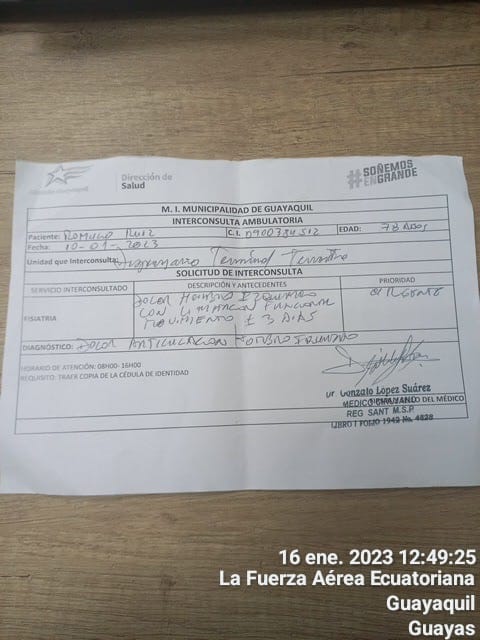 Dirección de
Salud
#SOÑEMOS
ENGRANDE
M. I. MUNICIPALIDAD DE GUAYAQUIL
INTERCONSULTA AMBULATORIA
Paciente: ROMULO RUIZ C.I. 0900384512 EDAD: 78 AÑOS
Fecha: 10-01-2023
Unidad que Interconsulta: Dispensario Terminal Terrestre
SOLICITUD DE INTERCONSULTA
SERVICIO INTERCONSULTADO DESCRIPCIÓN Y ANTECEDENTES PRIORIDAD
FISIATRIA
DOLOR HOMBRO IZQUIERDO URGENTE
CON LIMITACION FUNCIONAL
MOVIMIENTO ± 3 DIAS
DIAGNÓSTICO: DOLOR ARTICULACION HOMBRO IZQUIERDO
HORARIO DE ATENCIÓN: 08H00- 16H00
REQUISITO: TRAER COPIA DE LA CÉDULA DE IDENTIDAD
Dr Gonzalo López Suárez
MEDICO CIRUJANO DEL MÉDICO
REG SANT M.S.P.
LIBRO I FOLIO 1942 No. 4828
16 ene. 2023 12:49:25
La Fuerza Aérea Ecuatoriana
Guayaquil
Guayas